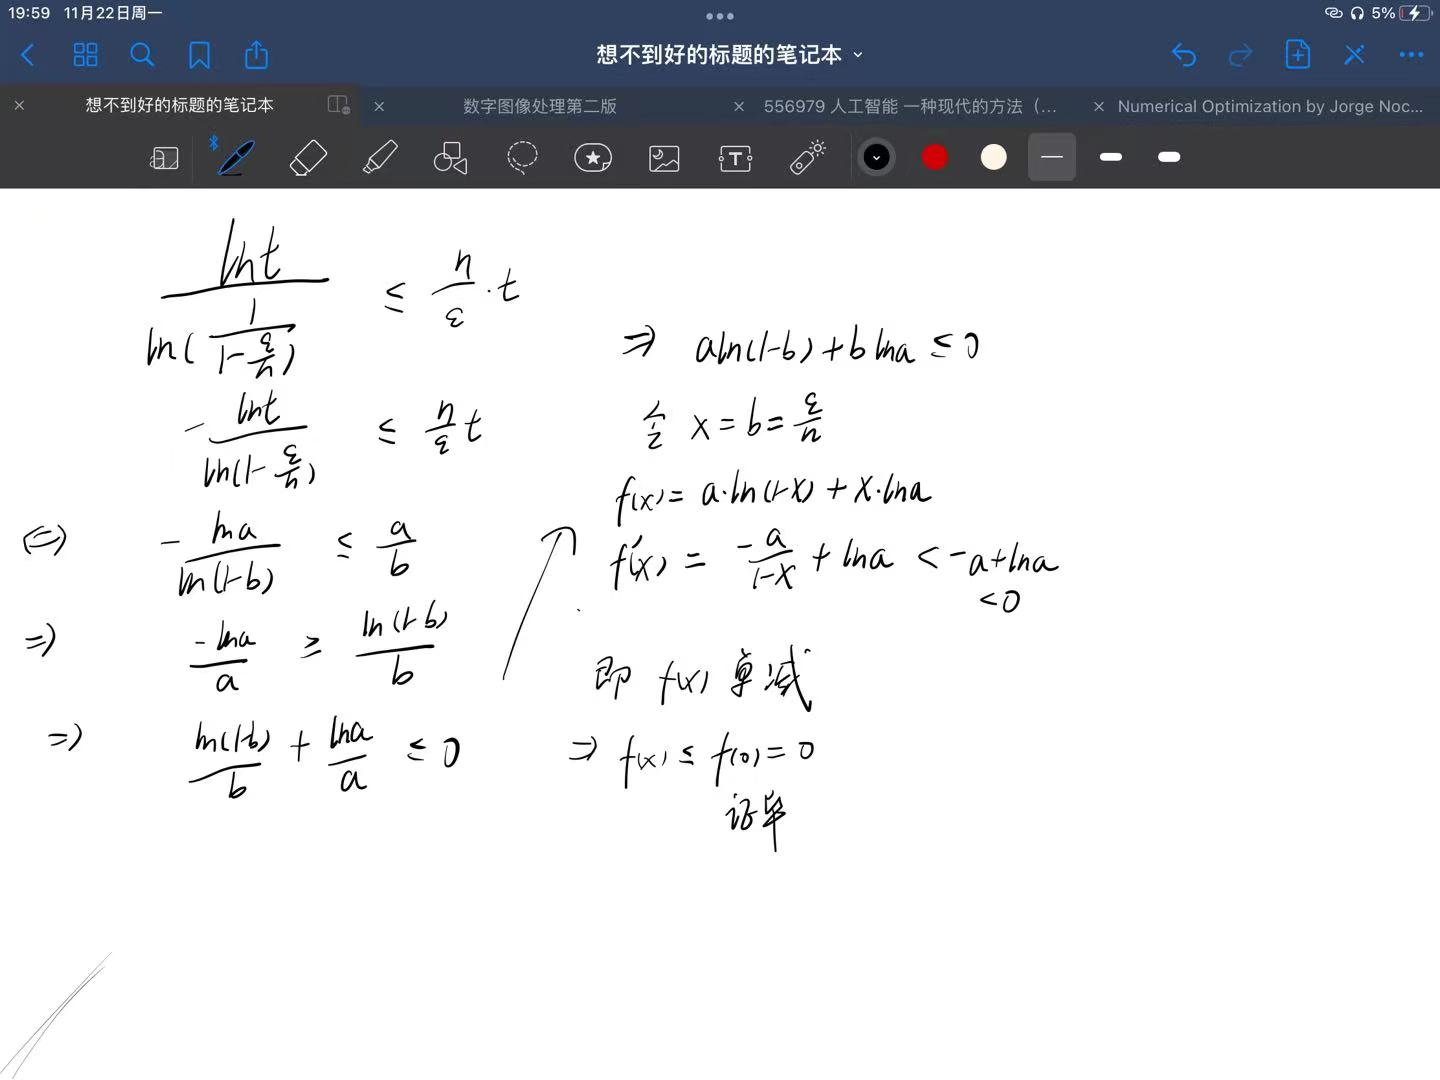 19:59 11月22日周一
5%
想不到好的标题的笔记本
想不到好的标题的笔记本
数字图像处理第二版
556979 人工智能 一种现代的方法（...
Numerical Optimization by Jorge Noc...
lnt / ln(1/(1-ε/n)) ≤ n/ε · t
-lnt / ln(1-ε/n) ≤ n/ε t
<=> -lna / ln(1-b) ≤ a/b
=> -lna / a ≥ ln(1-b) / b
=> ln(1-b) / b + lna / a ≤ 0
=> aln(1-b)+b lna ≤ 0
令 x = b = ε/n
f(x) = a·ln(1-x) + x·lna
f'(x) = -a/(1-x) + lna < -a+lna
<0
即 f(x) 单减
=> f(x) ≤ f(0) = 0
证毕